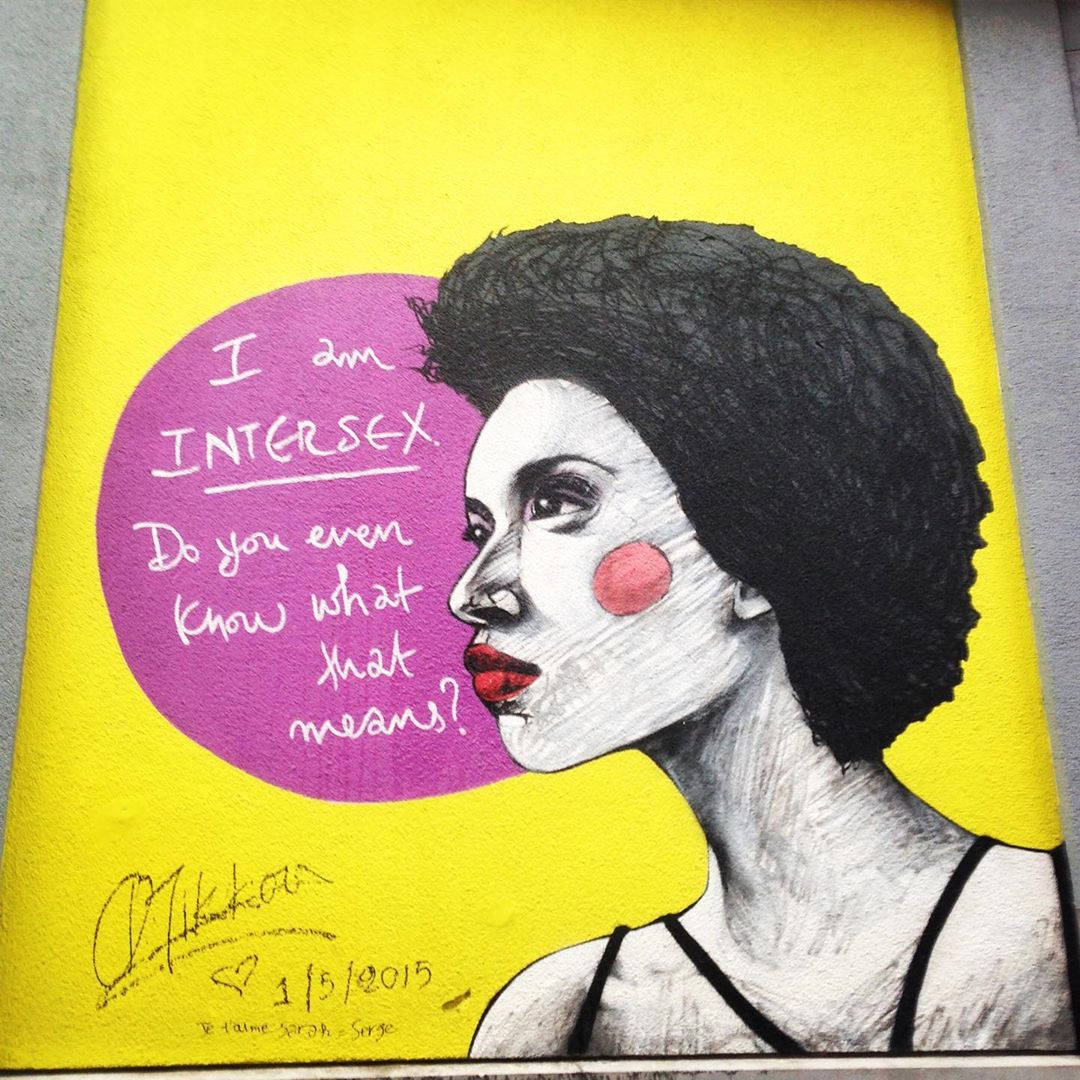 I am
INTERSEX.
Do you even
know what
that
means?
Mikkou
1/5/2015
Je t'aime Sarah = Serge